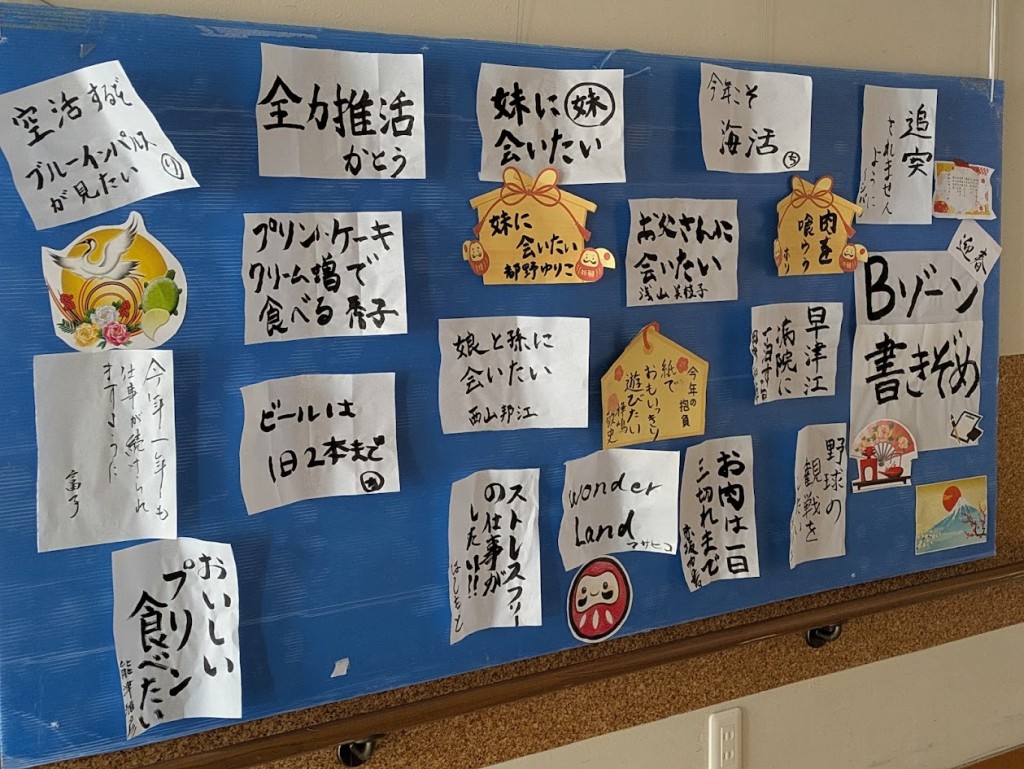 空活するぞ
ブルーインパルス
が見たい
全力推活
かとう
妹に 妹
会いたい
今年こそ
海活 ち
追突
されません
ように
迎春
Bゾーン
書きぞめ
プリンルケーキ
クリーム増で
食べる 秀子
妹に
会いたい
都野ゆりこ
お父さんに
会いたい
浅山美枝子
肉を
喰らう
ホリ
今年一年も
仕事が続けられ
ますように
富子
ビールは
1日2本まで
娘と孫に
会いたい
西山邦江
今年の抱負
紙で
おもいっきり
遊びたい
早津江
病院に
おいしい
プリン
食べたい
ストレスフリー
の仕事が
したい!!
はしもと
wonder
Land
マサヒコ
お肉は一日
三切れまで
野球の
観戦を
したい